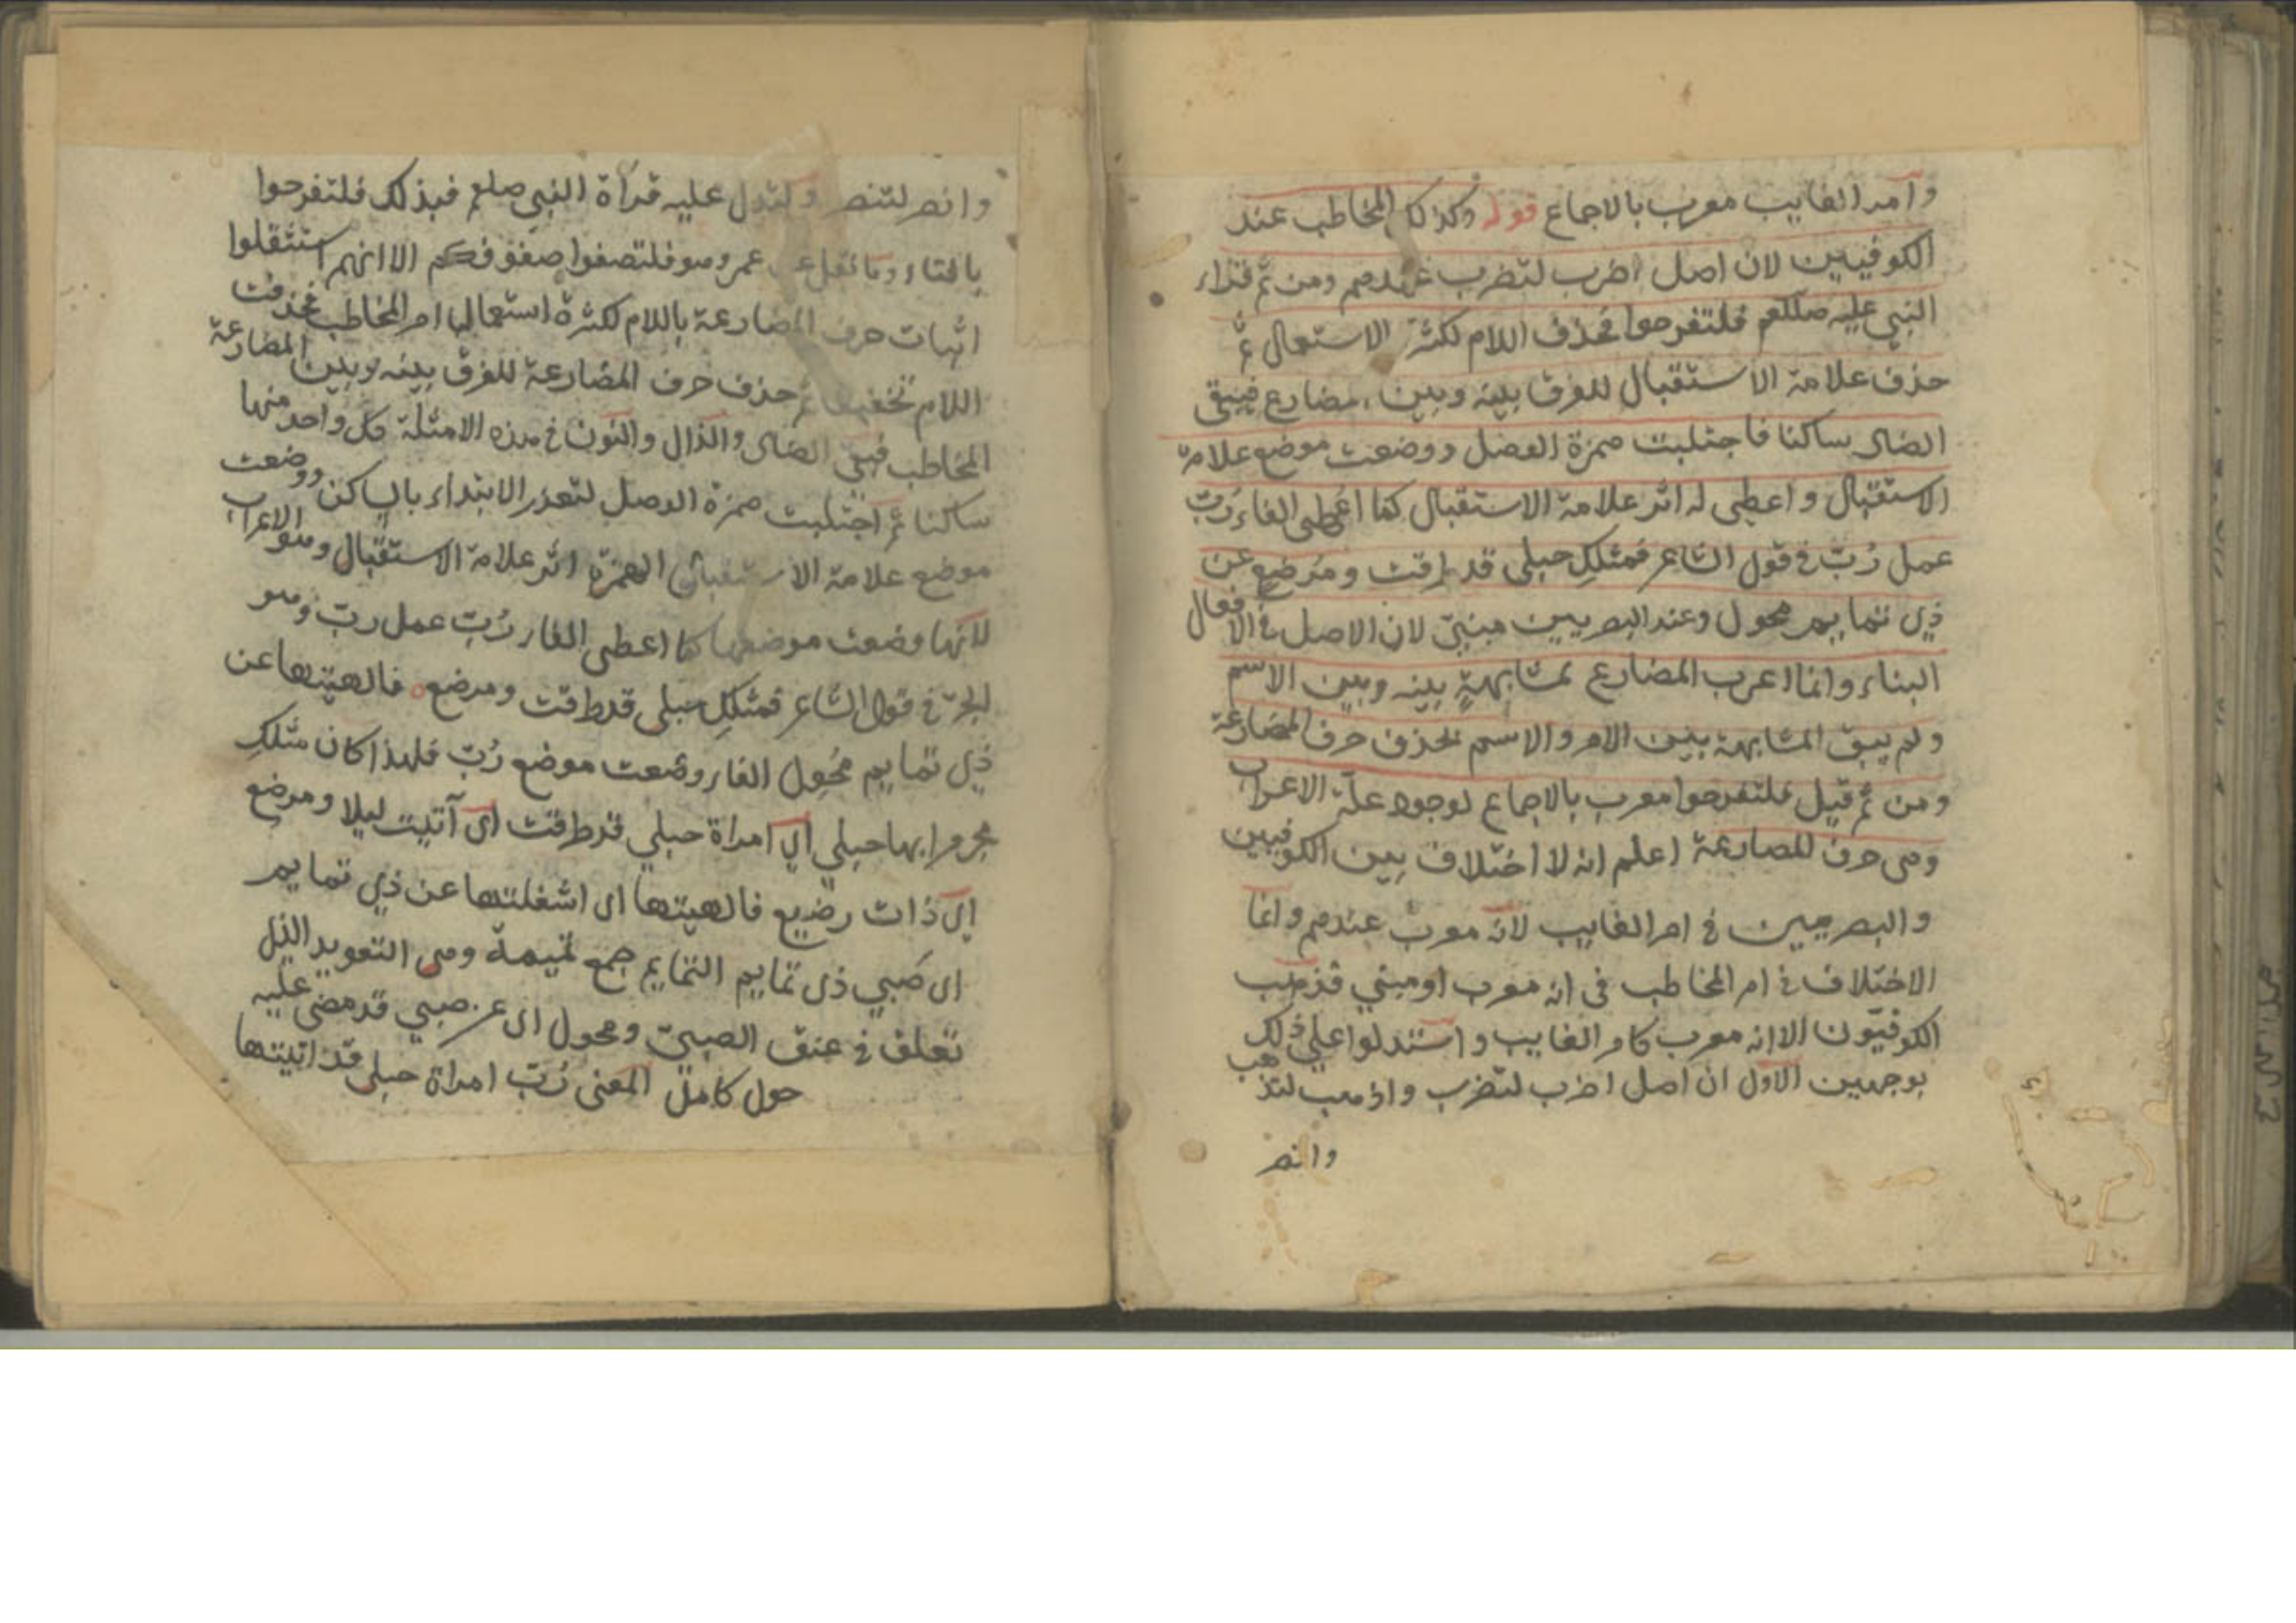 وامر الغايب معرب بالاجماع قوله وكذلك المخاطب عند
الكوفيين لان اصل اضرب لتضرب عندهم ومن ثم قراء
النبي عليه صلعم فلتفرحوا فحذف اللام لكثرة الاستعمال ثم
حذف علامة الاستقبال للفرق بينه وبين مضارع فبقي
الضاد ساكنا فاجتلبت همزة الوصل ووضعت موضع علامة
الاستقبال واعطى له اثر علامة الاستقبال كما اعطى الفاء رب
عمل رُبّ في قول الشاعر فمثلكِ حبلى قد طرقت ومرضع عن
ذي تمايم محول وعند البصريين مبنيّ لان الاصل في الافعال
البناء وانما اعرب المضارع لمشابهةٍ بينه وبين الاسم
ولم يبق المشابهة بين الامر والاسم بحذف حرف المضارعة
ومن ثم قيل فلتفرحوا معرب بالاجماع لوجود علة الاعراب
وهي حرف المضارعة اعلم انه لا اختلاف بين الكوفيين
والبصريين في امر الغايب لانه معرب عندهم وانما
الاختلاف في امر المخاطب في انه معرب او مبني فذهب
الكوفيّون الا انه معرب كامر الغايب واستدلوا على ذلك
بوجهين الاول ان اصل اضرب لتضرب واذهب لتذهب
وانصر
وانصر لتنصر ولتدل عليه قراة النبي صلعم فبذلك فلتفرحوا
بالتاء وما نقل عن عمر وهو فلتصفوا صفوفكم الا انهم استثقلوا
اثبات حرف المضارعة باللام لكثرة استعمالها امر المخاطب فحذفت
اللام تخفيفا ثم حذف حرف المضارعة للفرق بينه وبين المضارعة
المخاطب فبقي الضاد والذال والنون في هذه الامثلة كل واحد منها
ساكنا ثم اجتلبت همزة الوصل لتعذر الابتداء بالساكن ووضعت
موضع علامة الاستقبال الهمزة اثر علامة الاستقبال وهو الاعراب
لانها وضعت موضعها كما اعطى الفاء رُبّ عمل ربّ وهو
الجرّ في قول الشاعر فمثلكِ حبلى قد طرقت ومرضع فالهيتها عن
ذي تمايم مُحْوِل الفاء وضعت موضع رُبّ فلهذا كان مثلكِ
مجرورا بها حبلى اي امراة حبلي قد طرقت اى آتيت ليلا ومرضع
اى ذات رضيع فالهيتها اى اشغلتها عن ذي تمايم
اى صبي ذى تمايم التمايم جمع تميمة وهى التعويذ الذى
تعلق في عنق الصبيّ ومحول اى عن صبي قد مضى عليه
حول كامل المعنى رُبّ امراة حبلى قد اتيتها